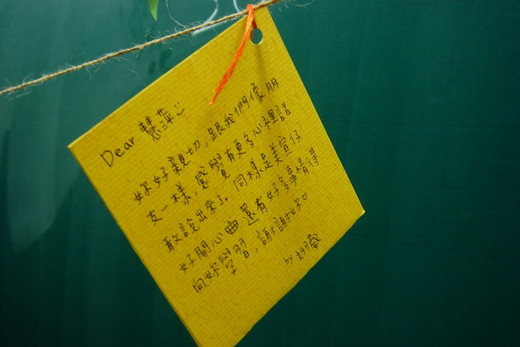 Dear 慧萍
妳好親切,跟我們像朋
友一樣,感覺有更多心裡話
敢說出來了,同樣是美宣仔
好開心 還有好多事情得
向妳學習,謝謝妳
by